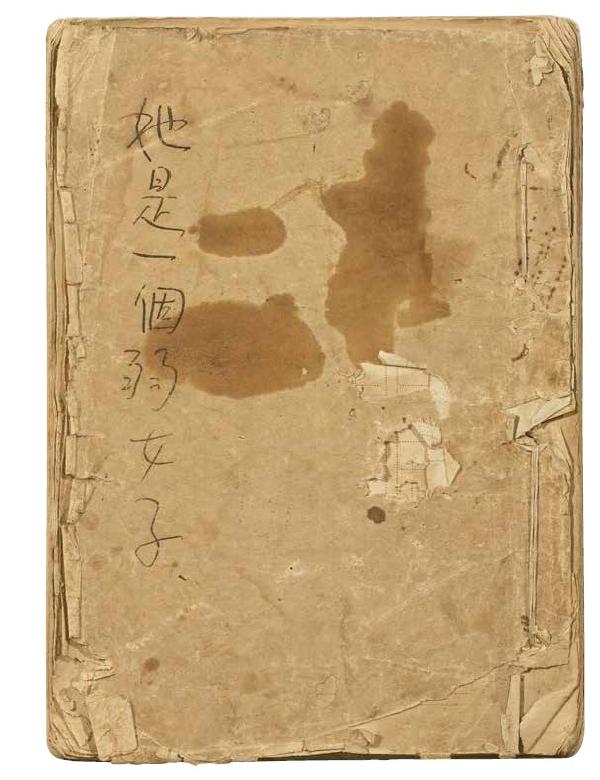 她是一個弱女子